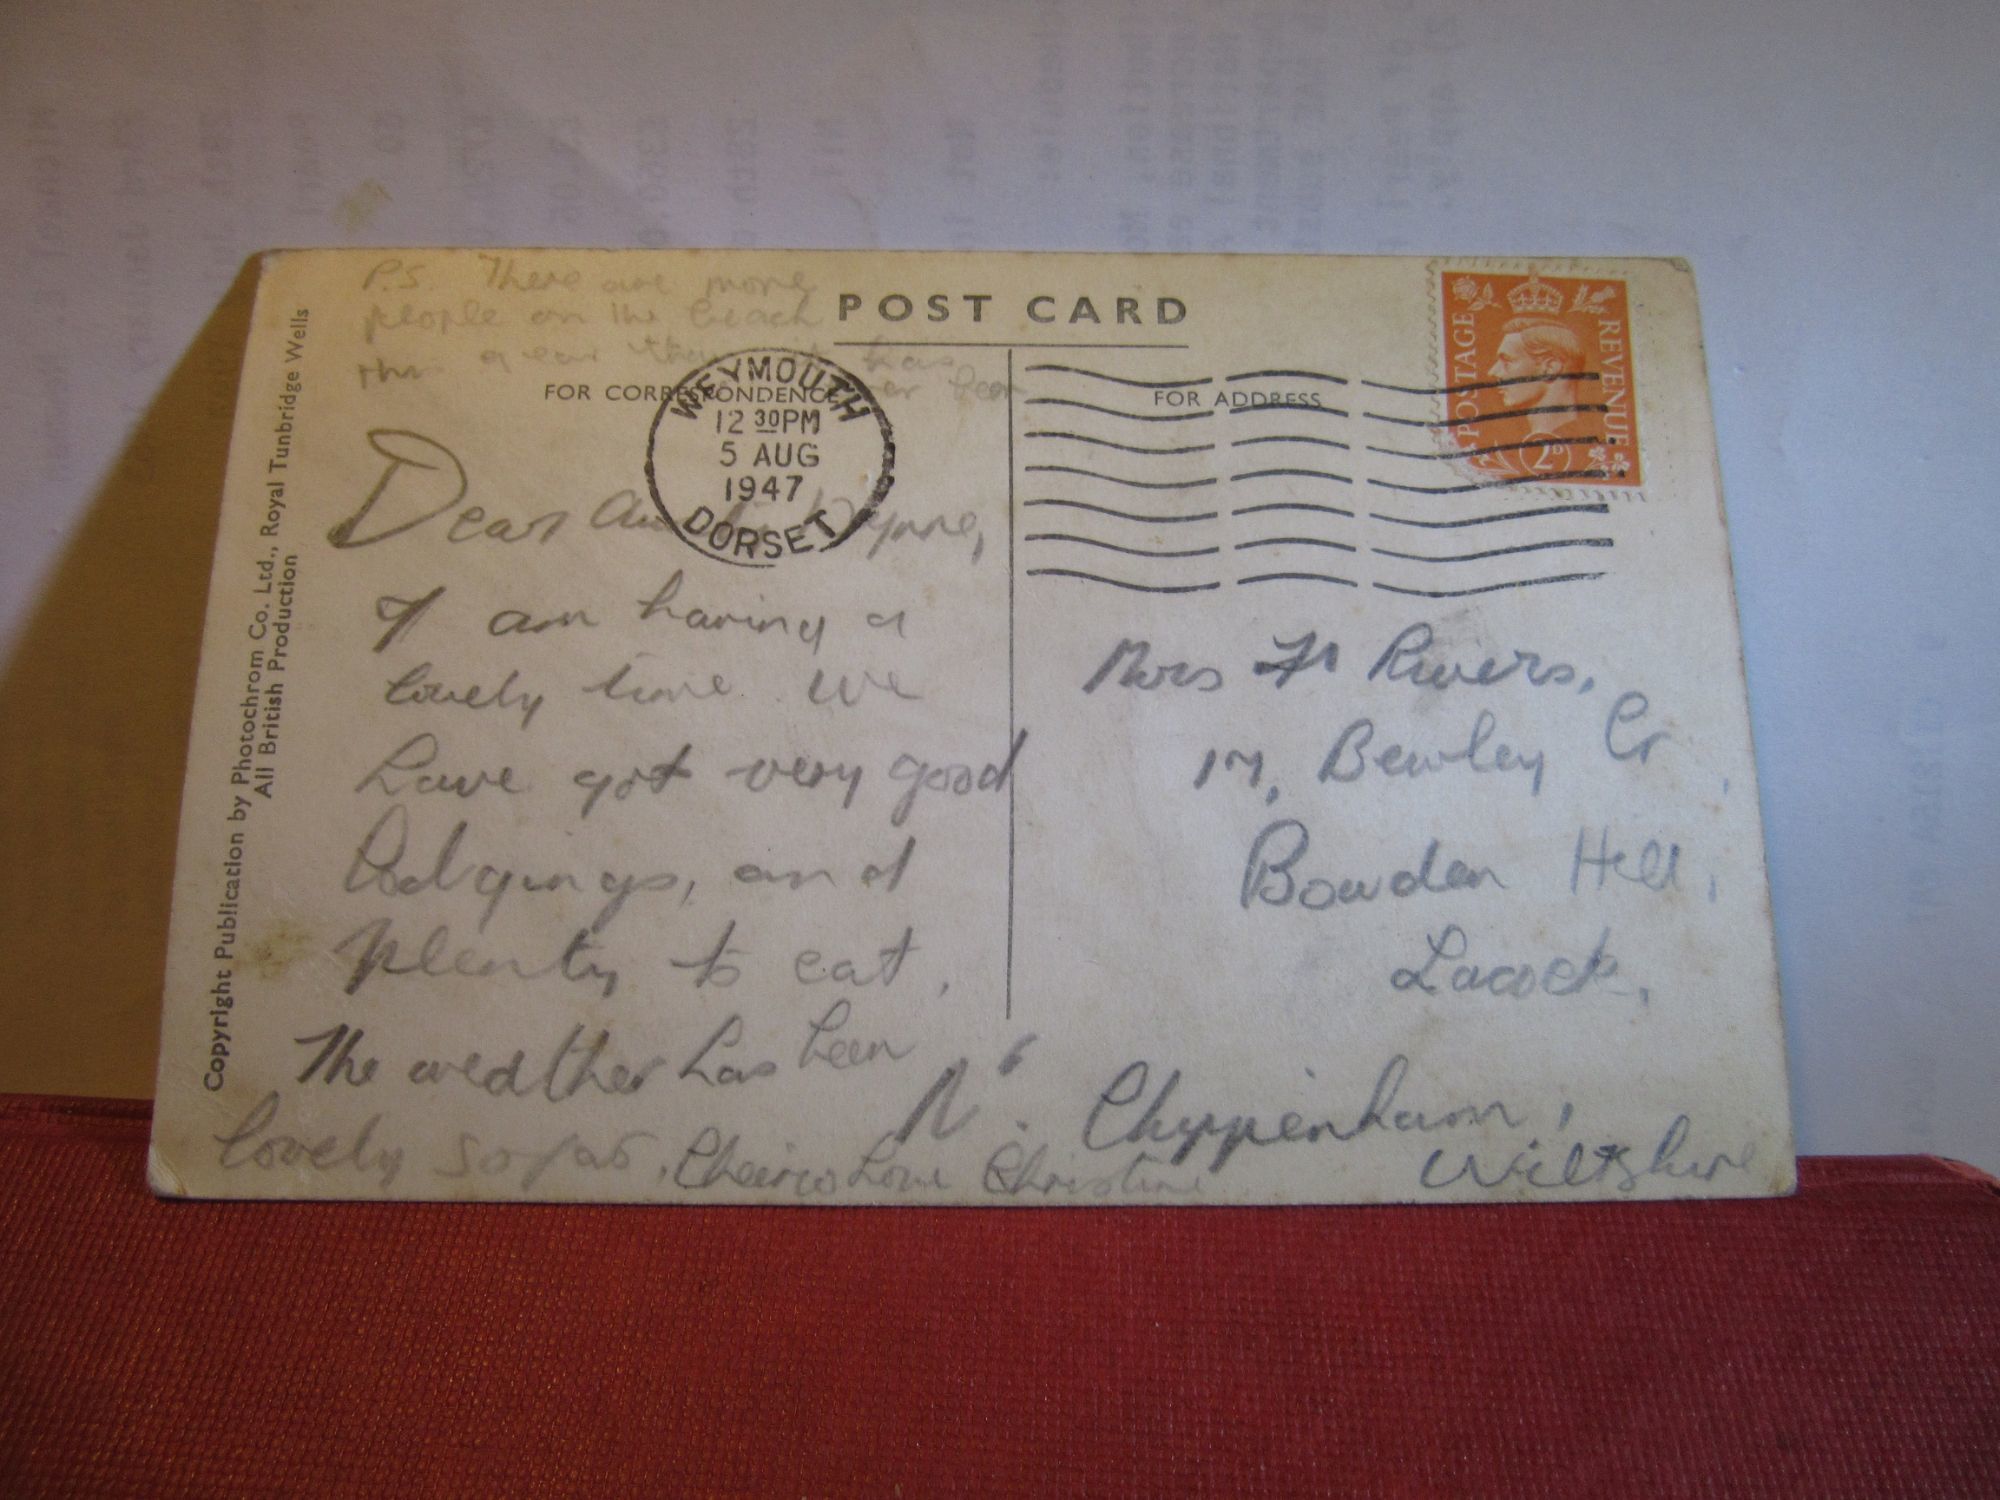 P.S. There are more
people on the beach
this year than it has
ever been
POST CARD
FOR CORRESPONDENCE
FOR ADDRESS
WEYMOUTH
12 30PM
5 AUG
1947
DORSET
POSTAGE
REVENUE
2D
Dear Wynne,
I am having a
lovely time We
have got very good
lodgings, and
plenty to eat.
The weather has been
lovely so far. Cheirio Love Christine
Mrs Rivers,
17, Bewley Cr
Bowden Hill,
Lacock,
Nr. Chippenham,
Wiltshire
Copyright Publication by Photochrom Co. Ltd., Royal Tunbridge Wells
All British Production